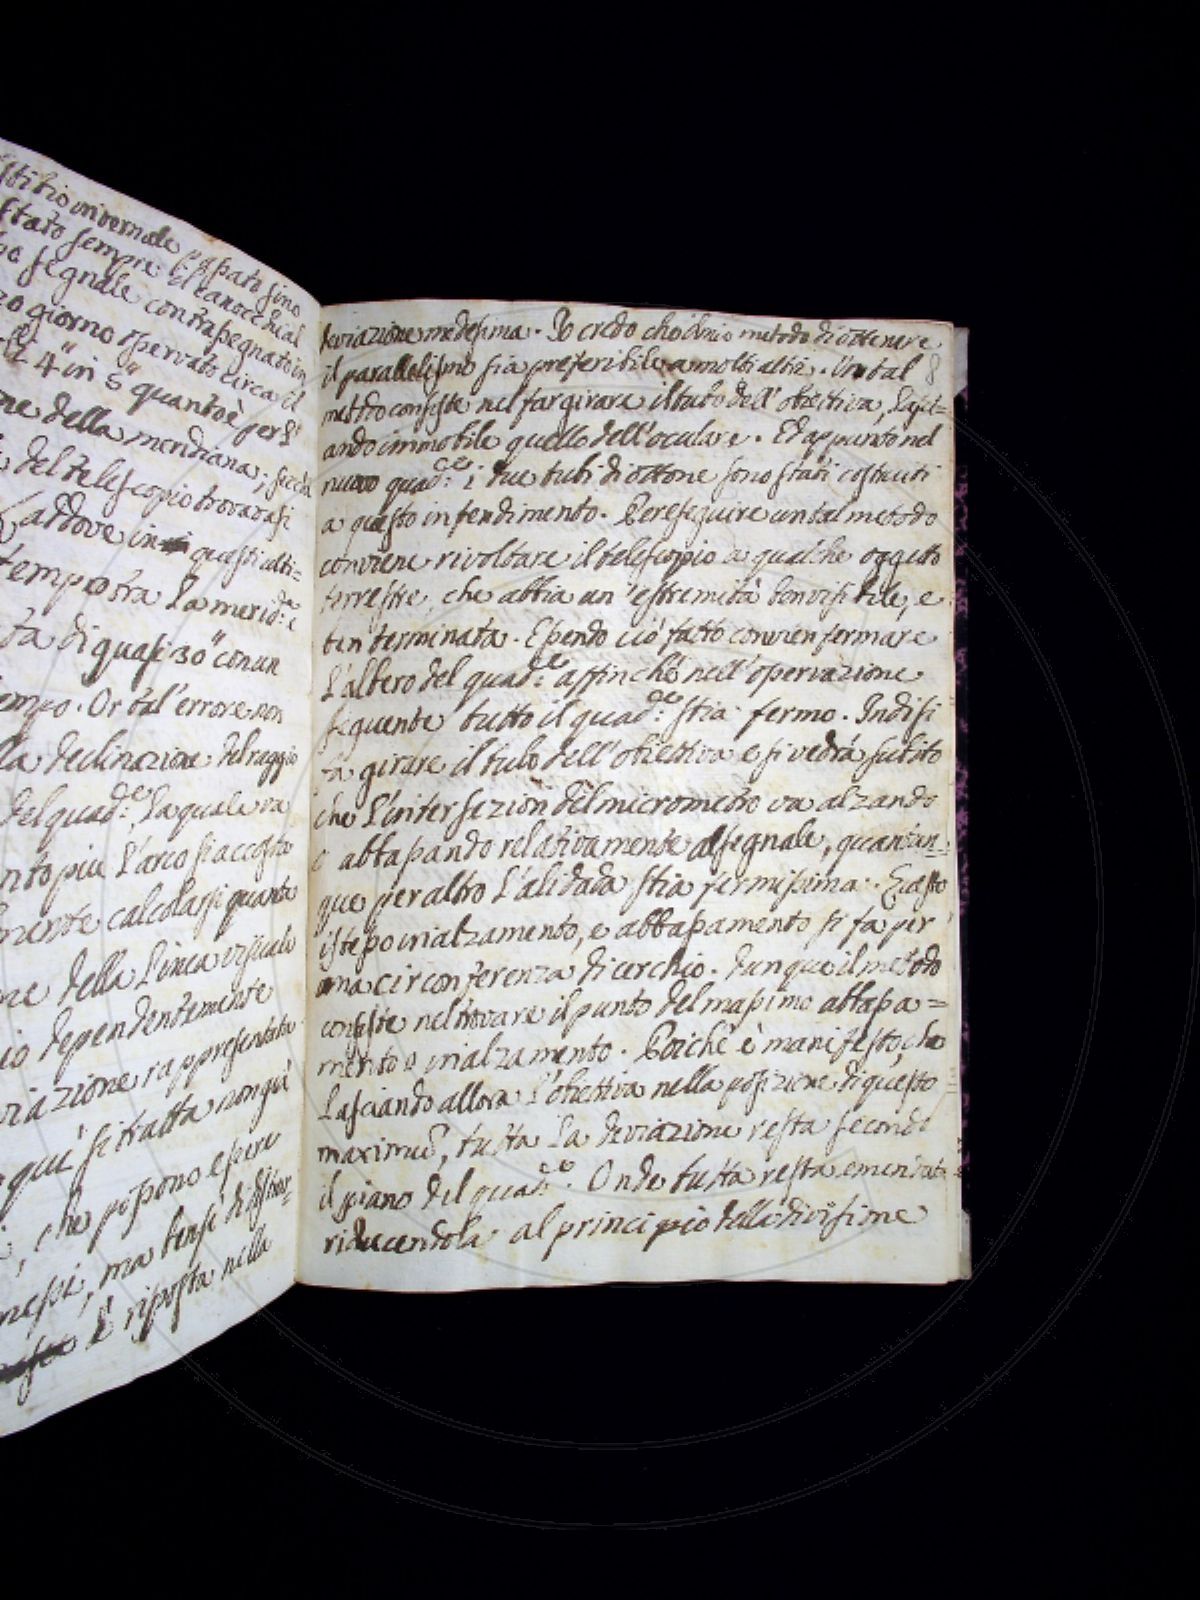 stitio invernale passato sino
stato sempre il canocchial
segnale contrassegnato in
zo giorno osservato circa il
4" in 5" quanto è per l'
ne della meridiana; secdo
del telescopio trovavasi
addove in questi ulti=
tempo tra la merid.na e
ta di quasi 30" con un
empo. Or tal' errore non
la declinazione del raggio
del quad.te, la quale va
nto piu l'arco si accosta
mente calcolarsi quanto
ne della linea visuale
io dependentemente
viazione rappresentata
qui si tratta non già
i, che possono essere
messi, ma bensì di distin=
è risposta nella
deviazione medesima. Io credo che il mio metodo di ottenere
il parallelismo sia preferibile a molti altri. Un tal 8
metodo consiste nel far girare il tubo dell' obiettiva, lasci-
ando immobile quello dell'oculare. Ed appunto nel
nuovo quad.te i due tubi di ottone sono stati costruiti
a questo intendimento. Per eseguire un tal metodo
conviene rivoltare il telescopio a qualche oggetto
terrestre, che abbia un' estremità ben visibile, e
ben terminata. Essendo ciò fatto convien fermare
L'albero del quad.te affinchè nell' osservazione
seguente tutto il quad.te stia fermo. Indi si
fa girare il tubo dell' obiettiva e si vedrà subito
che l'intersezion del micrometro va alzando
o abbassando relativamente al segnale, quantun=
que per altro l'alidada stia fermissima. Questo
istesso inalzamento, e abbassamento si fa per
una circonferenza di cerchio. Dunque il metodo
consiste nel trovare il punto del massimo abbassa=
mento o inalzamento. Poichè è manifesto, che
lasciando allora l'obiettiva nella posizione di questo
maximum, tutta la deviazione resta secondo
il piano del quad.te. Onde tutta resta emendata
riducendola al principio della divisione